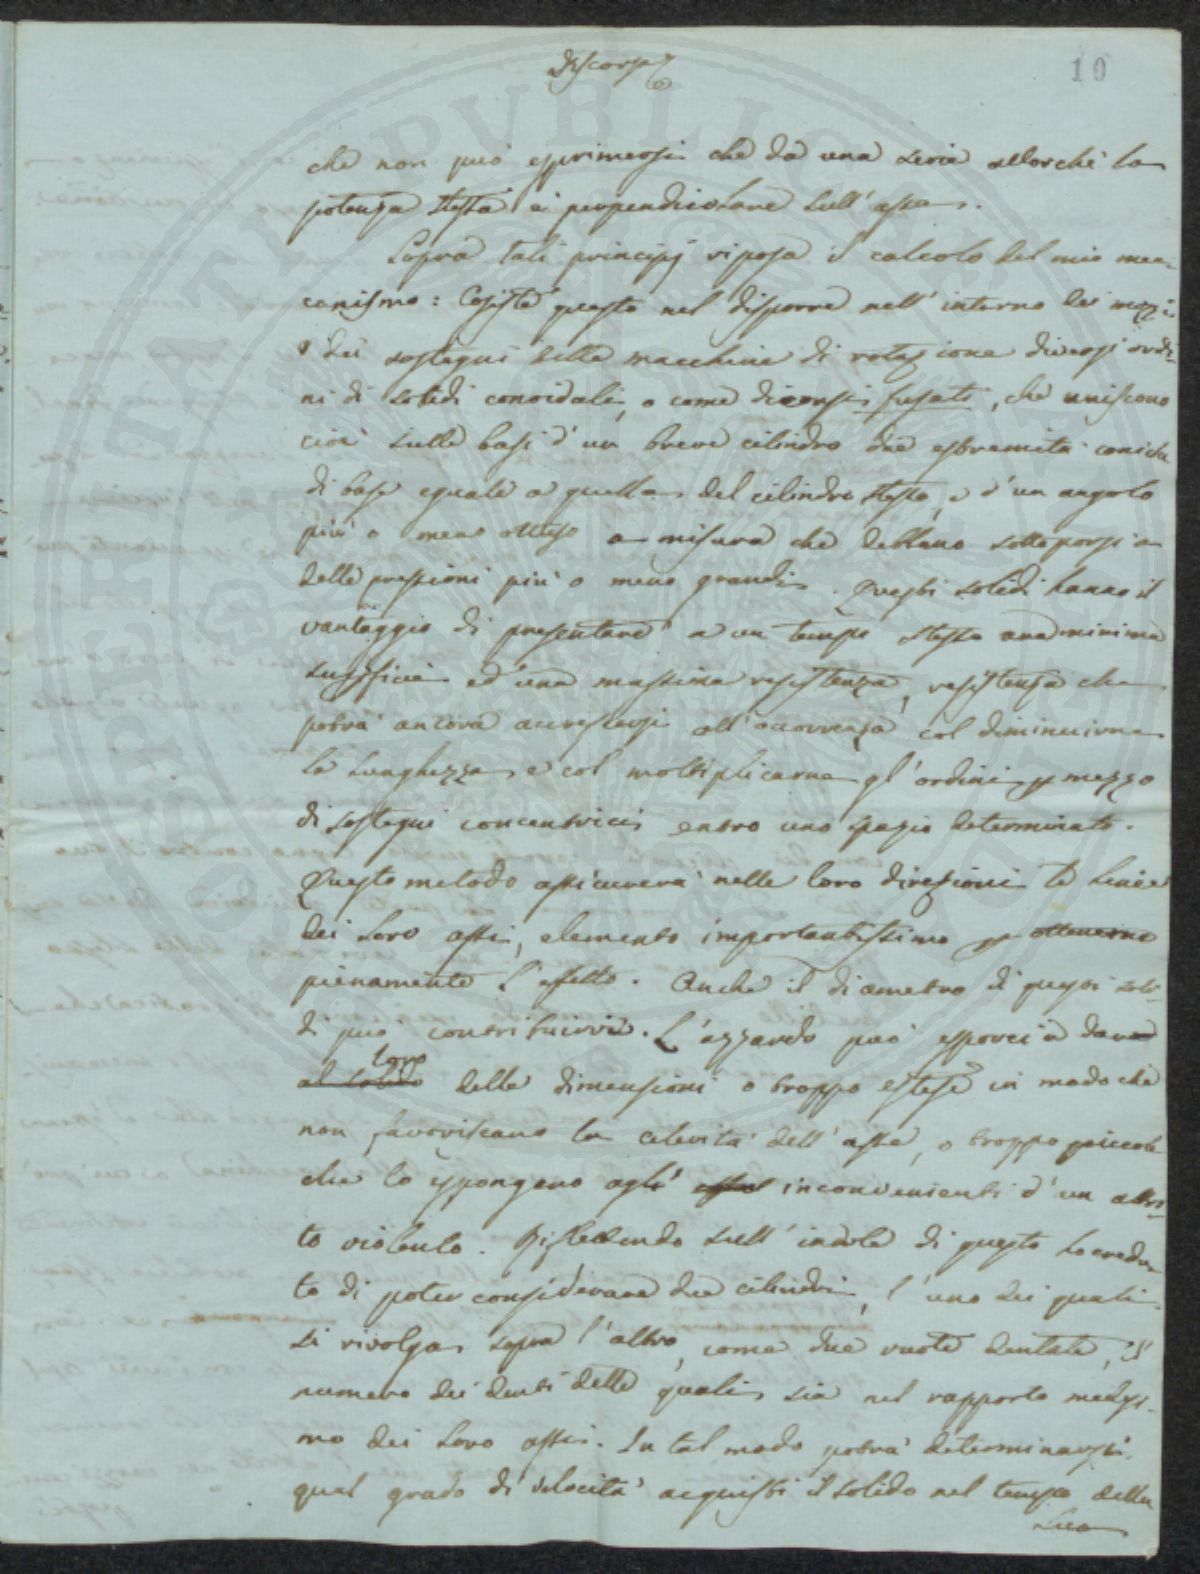 Discorso
10
che non può esprimersi che da una serie allorché la
potenza stessa è perpendicolare sull'asse.
Sopra tali principj riposa il calcolo del mio mec-
canismo: Cosiste questo nel disporre nell'interno dei mozzi
o dei sostegni delle macchine di rotazione diversi ordi-
ni di solidi conoidali, o come diconsi fusati, che uniscono
cioè sulle basi d'un breve cilindro due estremità coniche
di base eguale a quella del cilindro stesso, e d'un angolo
più o meno ottuso a misura che debbano sottoporsi a
delle pressioni più o meno grandi. Questi solidi hanno il
vantaggio di presentare a un tempo stesso una minima
superficie ed una massima resistenza, resistenza che
potrà ancora accrescersi all'occorrenza col diminuirne
la lunghezza e col moltiplicarne gl'ordini per mezzo
di sostegni concentrici entro uno spazio determinato.
Questo metodo assicurerà nelle loro direzioni le linee
dei loro assi, elemento importantissimo per ottenerne
pienamente l'effetto. Anche il diametro di questi soli-
di può contribuirvi. L'azzardo può esporci a dare
loro
al solido delle dimensioni o troppo estese in modo che
non favoriscano la celerità dell'asse, o troppo piccole
che lo espongano agli inconvenienti d'un attri-
to violento. Riflettendo sull'indole di questo ho credu-
to di poter considerare due cilindri, l'uno dei quali
si rivolga sopra l'altro, come due ruote dentate, il
numero dei denti delle quali sia nel rapporto medesi-
mo dei loro assi. In tal modo potrà determinarsi
qual grado di velocità acquisti il solido nel tempo della
sua